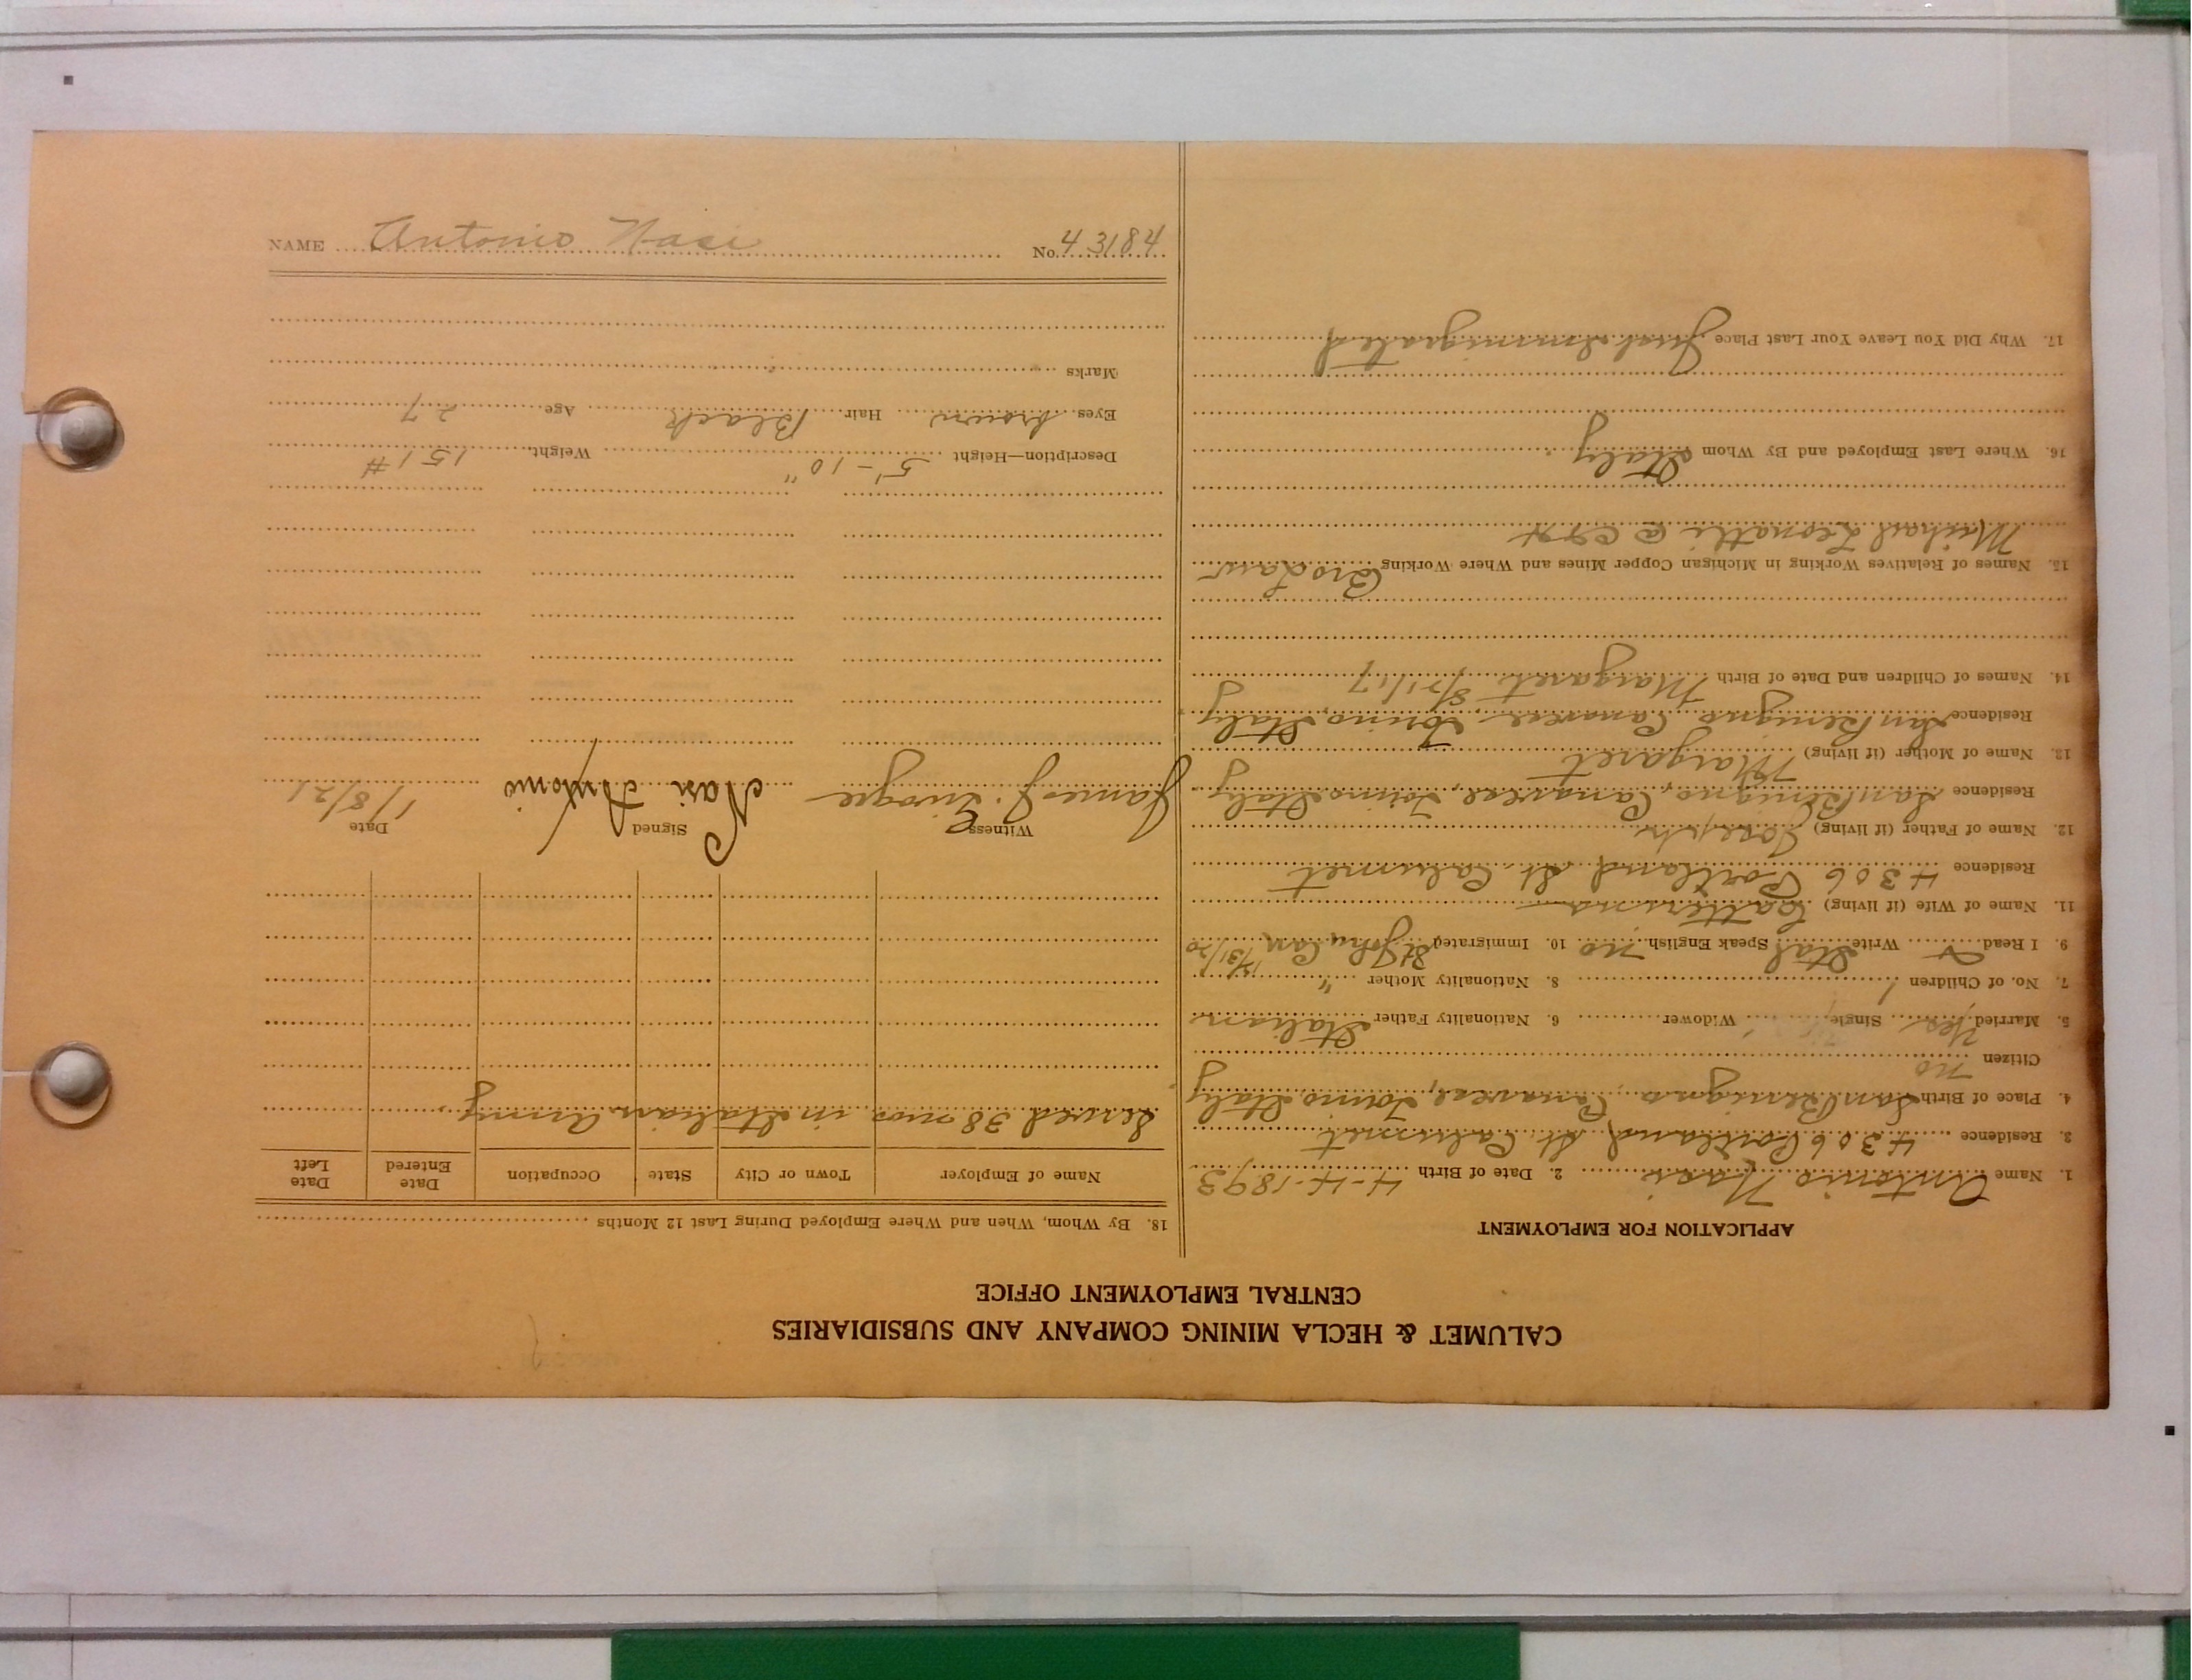 CALUMET & HECLA MINING COMPANY AND SUBSIDIARIES
CENTRAL EMPLOYMENT OFFICE
APPLICATION FOR EMPLOYMENT
1. Name Antonio Nasi 2. Date of Birth 4-4-1893
3. Residence 4306 Portland St. Calumet
4. Place of Birth San Benigno, Canavese, Torino, Italy
Citizen no
5. Married Yes Single Widower 6. Nationality Father Italian
7. No. of Children 1 8. Nationality Mother "
9. I Read & Write Ital Speak English no 10. Immigrated St John, Can 12/31/20
11. Name of Wife (if living) Catterina
Residence 4306 Portland St. Calumet
12. Name of Father (if living) Joseph
Residence San Benigno, Canavese, Torino Italy
13. Name of Mother (if living) Margaret
Residence San Benigno Canavese, Torino, Italy
14. Names of Children and Date of Birth Margaret 8/21/17
15. Names of Relatives Working in Michigan Copper Mines and Where Working Bro Law
Michael Leonatti @ C&H
16. Where Last Employed and By Whom Italy
17. Why Did You Leave Your Last Place Just Immigrated
18. By Whom, When and Where Employed During Last 12 Months
Name of Employer Town or City State Occupation Date Entered Date Left
Served 38 mos in Italian Army
Witness Signed Date
James J. Nasi Antonio 1/8/21
Description—Height 5'-10" Weight 151#
Eyes brown Hair Black Age 27
Marks
NAME Antonio Nasi No. 43184